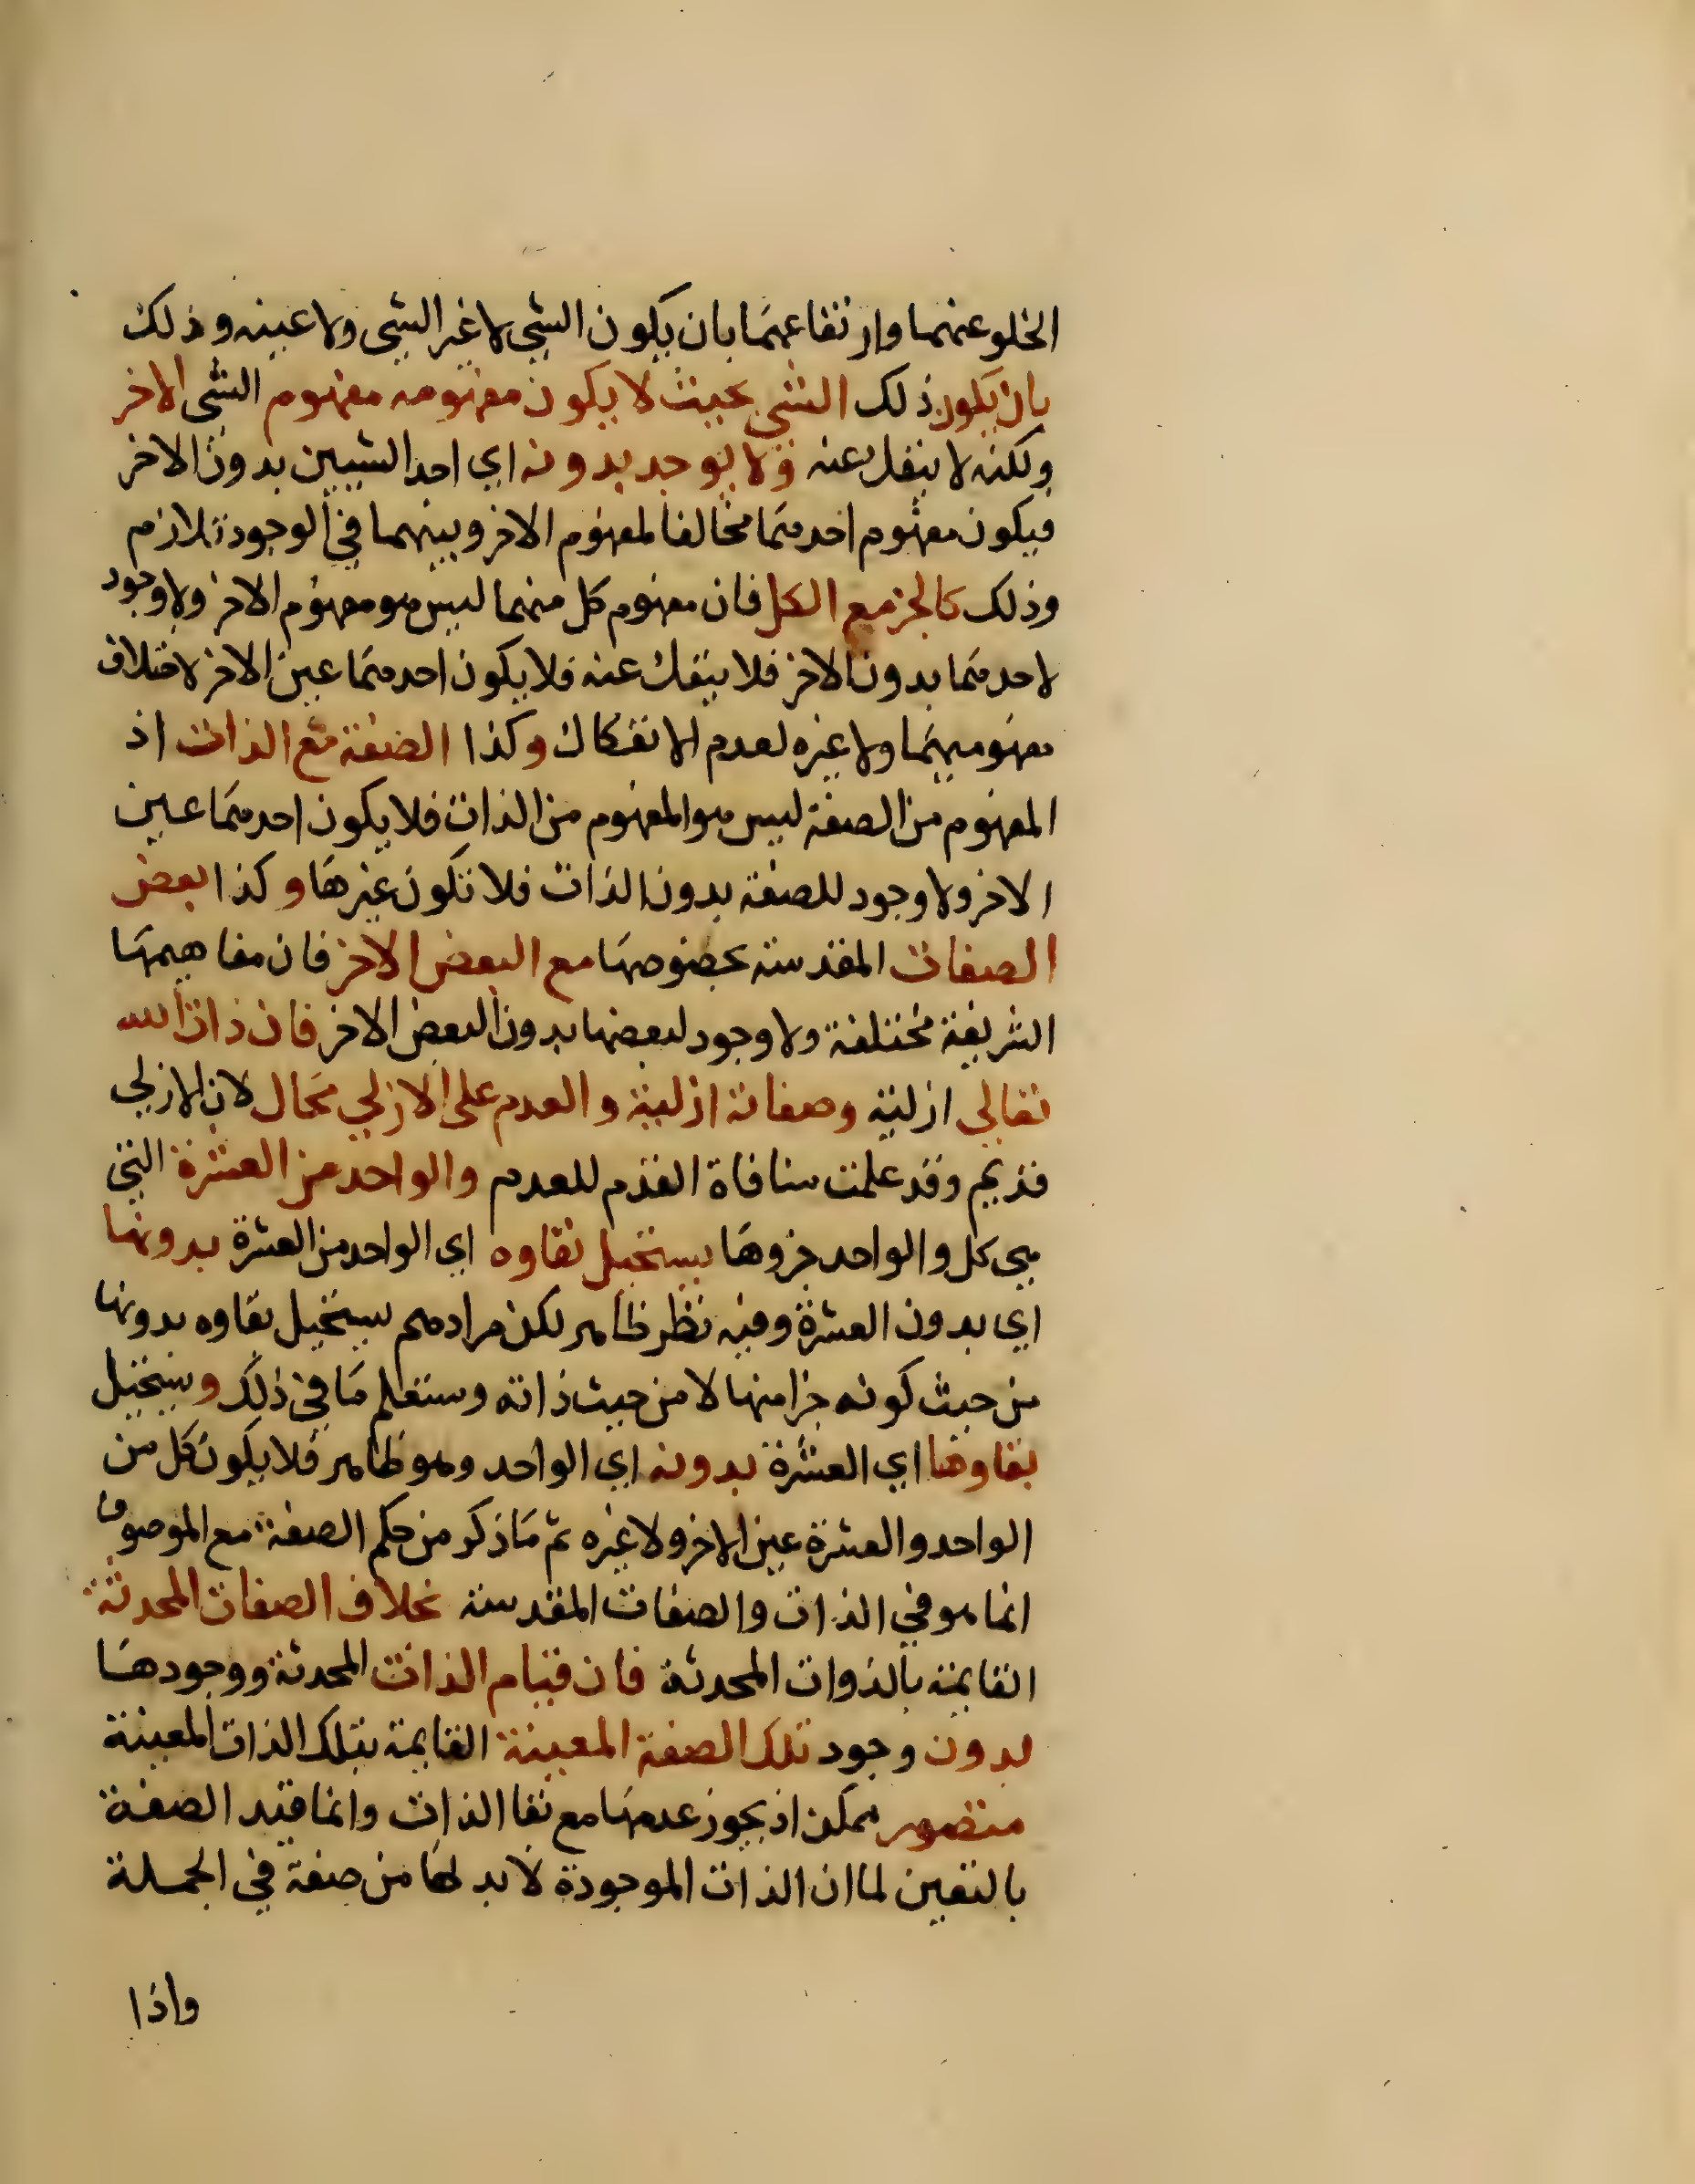 الخلو عنهما وارتفاعهما بان يكون الشي لا غير الشي ولا عينه وذلك
بان يكون ذلك الشي بحيث لا يكون مفهومه مفهوم الشي الاخر
ولكنه لا ينفك عنه ولا يوجد بدونه اي احد الشيين بدون الاخر
فيكون مفهوم احدهما مخالفا لمفهوم الاخر وبينهما في الوجود تلازم
وذلك كالجز مع الكل فان مفهوم كل منهما ليس هو مفهوم الاخر ولا وجود
لاحدهما بدون الاخر فلا ينفك عنه فلا يكون احدهما عين الاخر لاختلاف
مفهوميهما ولا غيره لعدم الانفكاك وكذا الصفة مع الذات اذ
المفهوم من الصفة ليس هو المفهوم من الذات فلا يكون احدهما عين
الاخر ولا وجود للصفة بدون الذات فلا تكون غيرها وكذا بعض
الصفات المقدسة بخصوصها مع البعض الاخر فان مفاهيمها
الشريفة مختلفة ولا وجود لبعضها بدون البعض الاخر فان ذات الله
تعالي ازلية وصفاته ازلية والعدم على الازلي محال لان الازلي
قديم وقد علمت منافاة القدم للعدم والواحد من العشرة التي
هي كل والواحد جزوها يستحيل بقاوه اي الواحد من العشرة بدونها
اي بدون العشرة وفيه نظر ظاهر لكن مرادهم يستحيل بقاوه بدونها
من حيث كونه جزا منها لا من حيث ذاته وستعلم ما في ذلك ويستحيل
بقاوها اي العشرة بدونه اي الواحد وهو ظاهر فلا يكون كل من
الواحد والعشرة عين الاخر ولا غيره ثم ما ذكر من حكم الصفة مع الموصوف
انما هو في الذات والصفات المقدسة بخلاف الصفات المحدثة
القايمة بالذوات المحدثة فان قيام الذات المحدثة ووجودها
بدون وجود تلك الصفة المعينة القايمة بتلك الذات المعينة
متصور ممكن اذ يجوز عدمها مع بقا الذات وانما قيد الصفة
بالتعين لما ان الذات الموجودة لا بد لها من صفة في الجملة
واذا